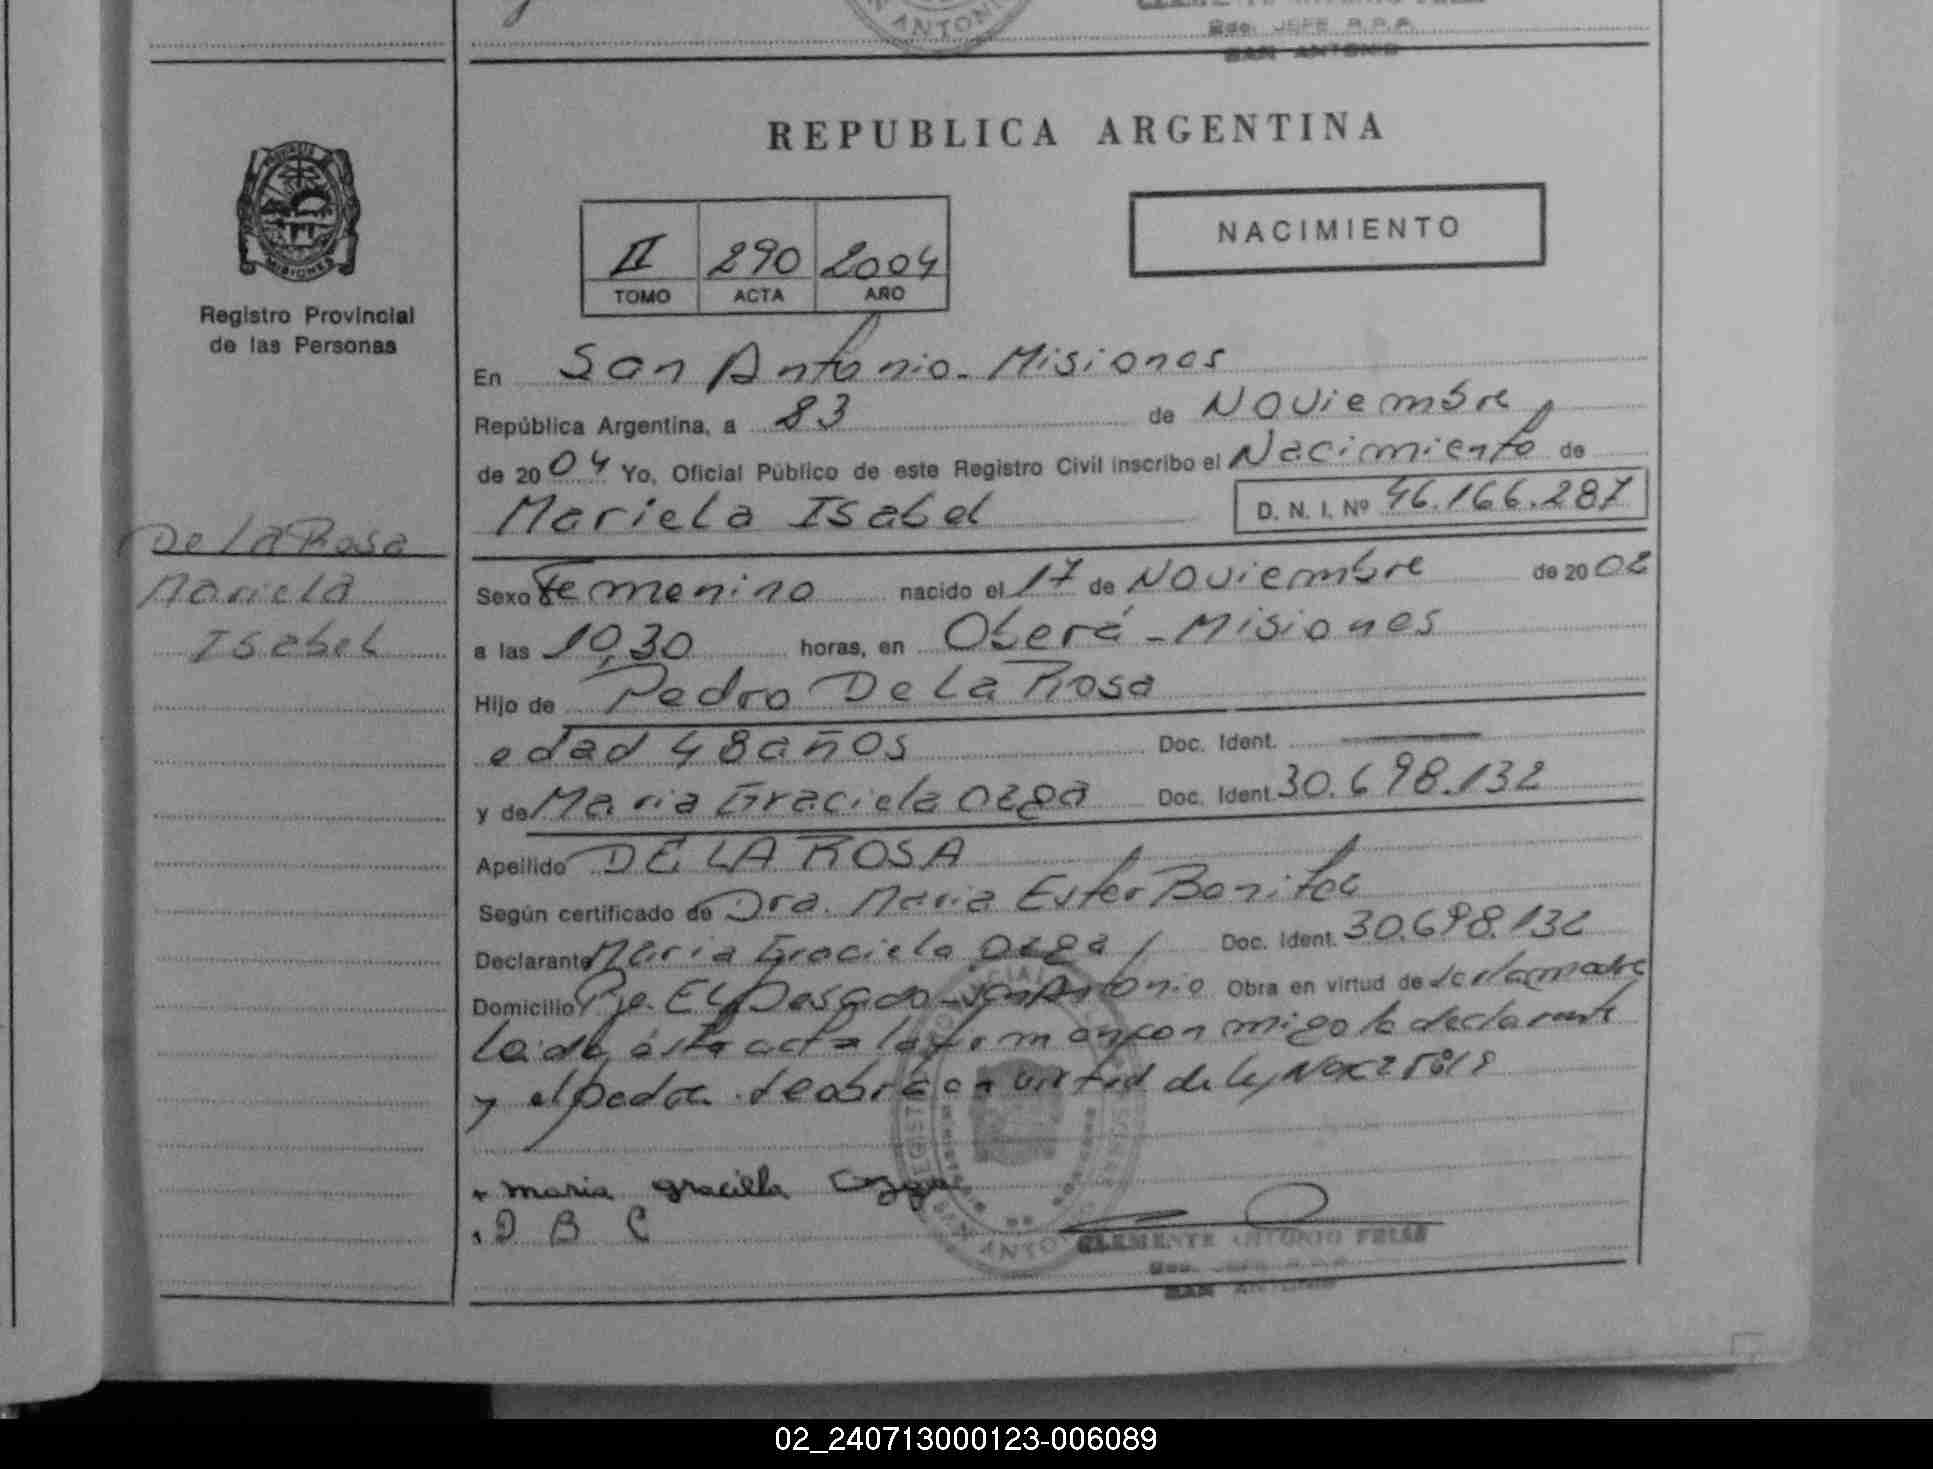 SAN ANTONIO
Bdo. JEFE R.P.P.
SAN ANTONIO
REPUBLICA ARGENTINA
PROVINCIA DE
MISIONES
Registro Provincial
de las Personas
II 290 2004
TOMO ACTA AÑO
NACIMIENTO
En San Antonio - Misiones
República Argentina, a 23 de Noviembre
de 2004 Yo, Oficial Público de este Registro Civil inscribo el Nacimiento de
Mariela Isabel D. N. I. Nº 46.166.287
De La Rosa
Mariela
Isabel
Sexo Femenino nacido el 17 de Noviembre de 2002
a las 10,30 horas, en Oberá - Misiones
Hijo de Pedro De La Rosa
edad 48 años Doc. Ident.
y de Maria Graciela Ozga Doc. Ident. 30.698.132
Apellido DE LA ROSA
Según certificado de Dra. Maria Ester Benitez
Declarante Maria Graciela Ozga / Doc. Ident. 30.698.132
Domicilio Pje. El Pesado - San Antonio Obra en virtud de ser la madre
Leida ésta acta la firman conmigo la declarante
y el padre en virtud de ley
maria graciella Ozga
D B C
CLEMENTE ANTONIO
SAN ANTONIO
02_240713000123-006089